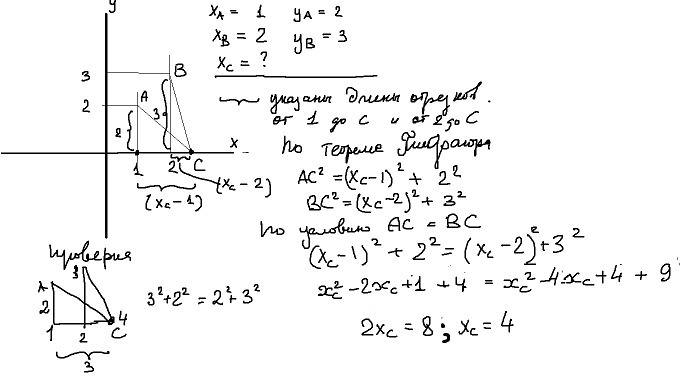 y
x_A = 1   y_A = 2
x_B = 2   y_B = 3
x_C = ?
3
2
A
B
2
3
x
1
2
C
(x_C-1)
(x_C-2)
указаны длины отрезков.
от 1 до C и от 2 до C
По теореме Пифагора
AC² = (x_C-1)² + 2²
BC² = (x_C-2)² + 3²
По условию AC = BC
(x_C-1)² + 2² = (x_C-2)² + 3²
x_C² - 2x_C + 1 + 4 = x_C² - 4x_C + 4 + 9
2x_C = 8; x_C = 4
Проверка
A
3
2
1
2
C
4
3
3² + 2² = 2² + 3²